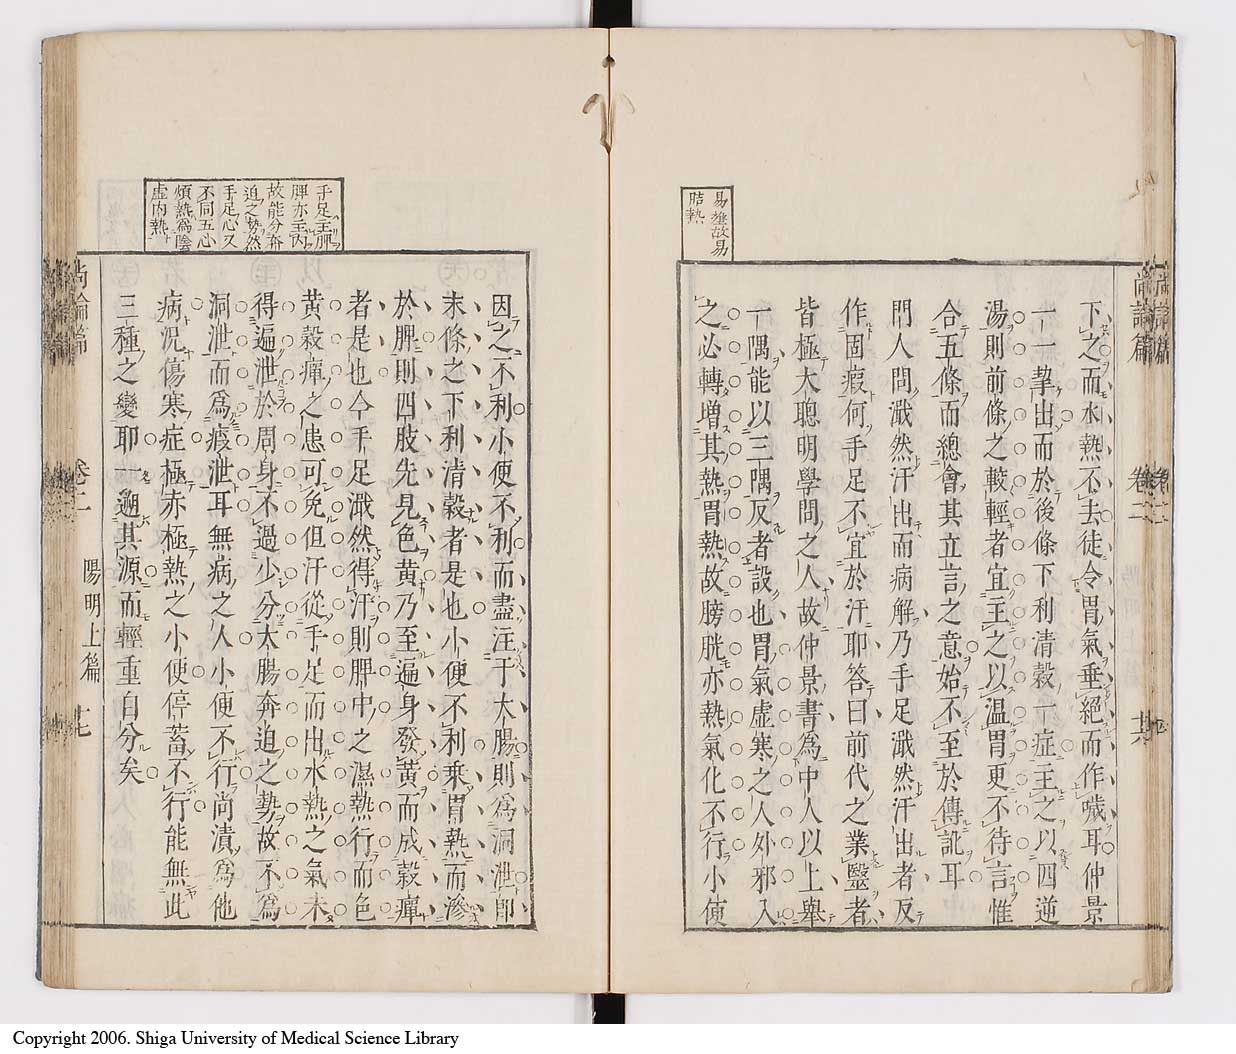 易雄故易
胎熱
尚論篇
卷二
下之而水熱不去徒令胃氣垂絕而作噦耳仲景
一一挈出而於後條下利清穀一症主之以四逆
湯則前條之較輕者宜主之以溫胃更不待言惟
合五條而總會其立言之意始不至於傳訛耳
門人問濈然汗出而病解乃手足濈然汗出者反
作固瘕何手足不宜於汗耶答曰前代之業醫者
皆極大聰明學問之人故仲景書爲中人以上舉
一隅能以三隅反者設也胃氣虛寒之人外邪入
之必轉增其熱胃熱故膀胱亦熱氣化不行小便
手足主脾
脾亦主內
故能分奔
迫之勢然
手足心又
不同五心
煩熱爲陰
虛內熱
因之不利小便不利而盡注于大腸則爲洞泄即
末條之下利清穀者是也小便不利乘胃熱而滲
於脾則四肢先見色黃乃至遍身發黃而成穀癉
者是也今手足濈然得汗則脾中之濕熱行而色
黃穀癉之患可免但汗從手足而出水熱之氣未
得遍泄於周身不過少分大腸奔迫之勢故不爲
洞泄而爲瘕泄耳無病之人小便不行尚漬爲他
病況傷寒症極赤極熱之小便停蓄不行能無此
三種之變耶一遡其源而輕重自分矣
尚論篇
卷二
陽明上篇